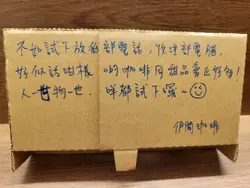 不如試下放低部電話，放埋部電腦，
好似話咁樣 啲咖啡同甜品會正好多！
人一世物一世，
咩都試下囉～
伊閣咖啡